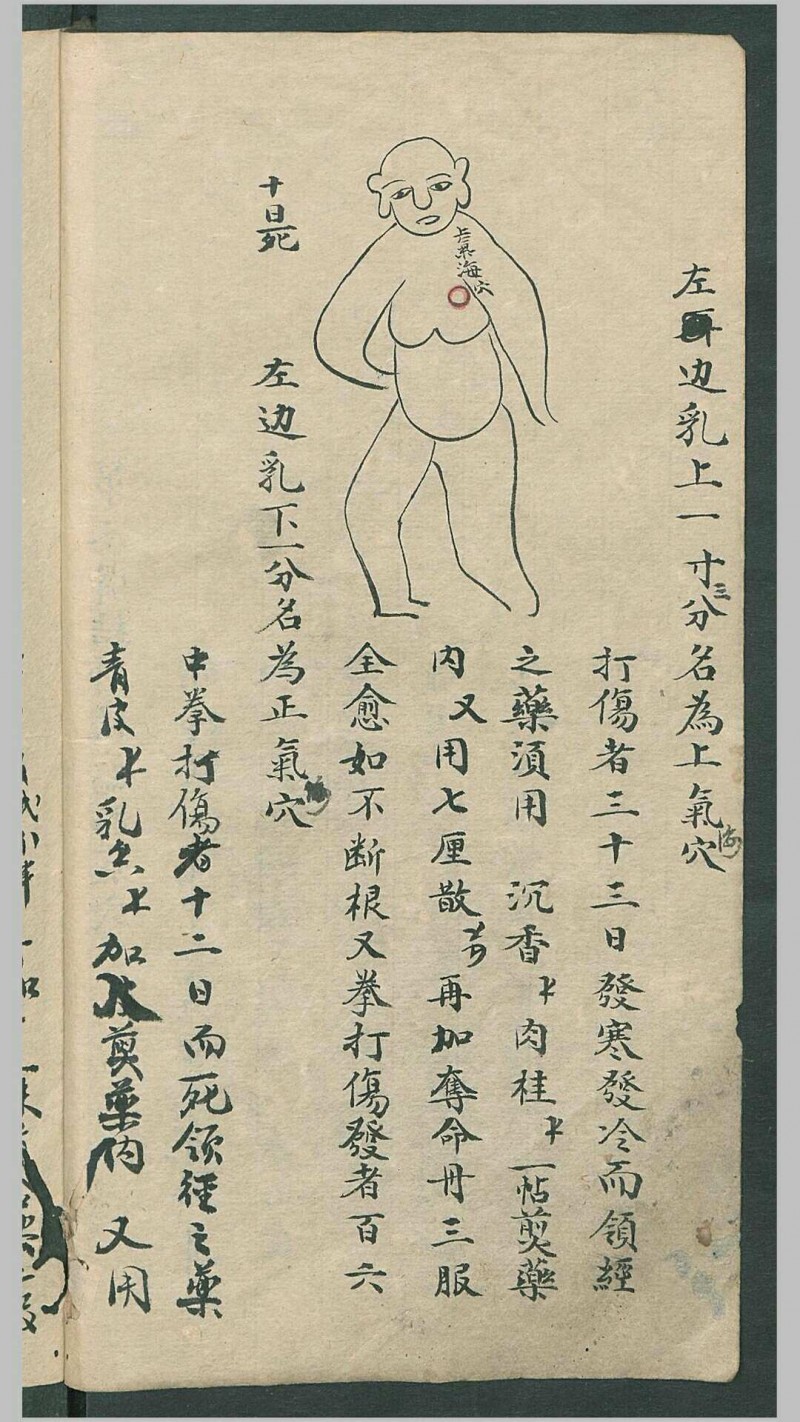 左边乳上一寸三分名為上氣海穴
打傷者三十三日發寒發冷而領經
之藥須用 沉香 肉桂 一帖煎藥
内 又用七厘散 再加奪命丹三服
全愈如不断根又拳打傷發者百六
上氣海穴
十日死
左边乳下一分名為正氣海穴
中拳打傷者十二日而死領徑之藥
青皮 乳香 加 煎藥内 又用